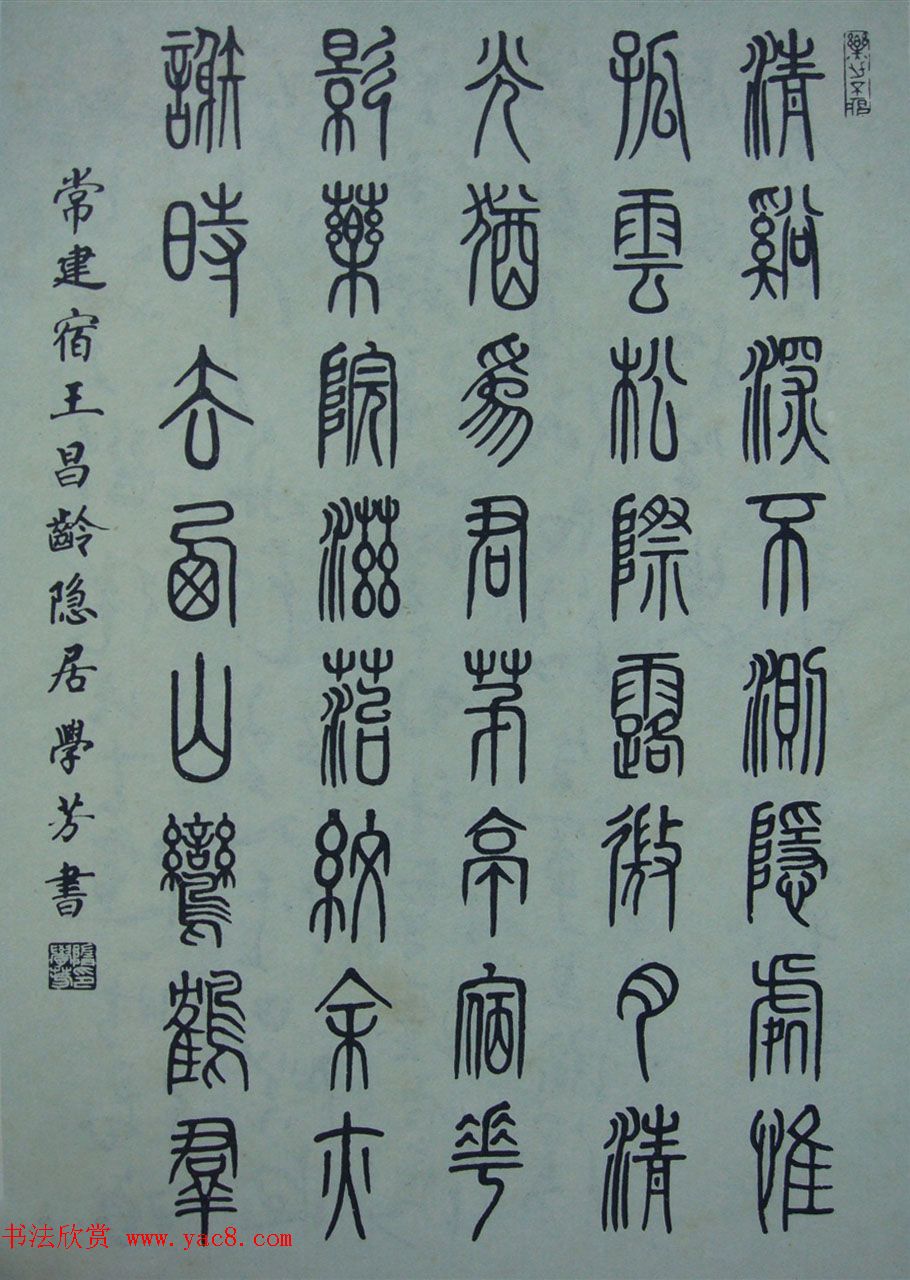 清谿深不測隱處惟
孤雲松際露微月清
光猶為君茅亭宿花
影藥院滋落紋余亦
謝時去西山鸞鶴羣
常建宿王昌齡隐居學芳書
书法欣赏 www.yac8.com